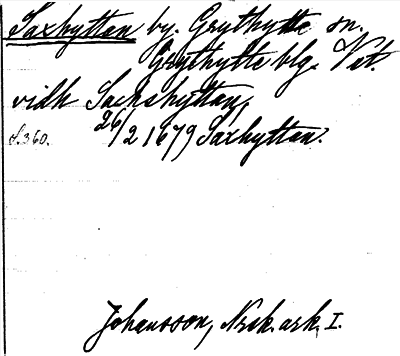 Saxhyttan by. Grythytte sn.
Grythytte blg. Vet.
vidh Sachshyttan,
S.360. 26/2 1679 Saxhyttan.
Johansson, Nrk. ark. I.